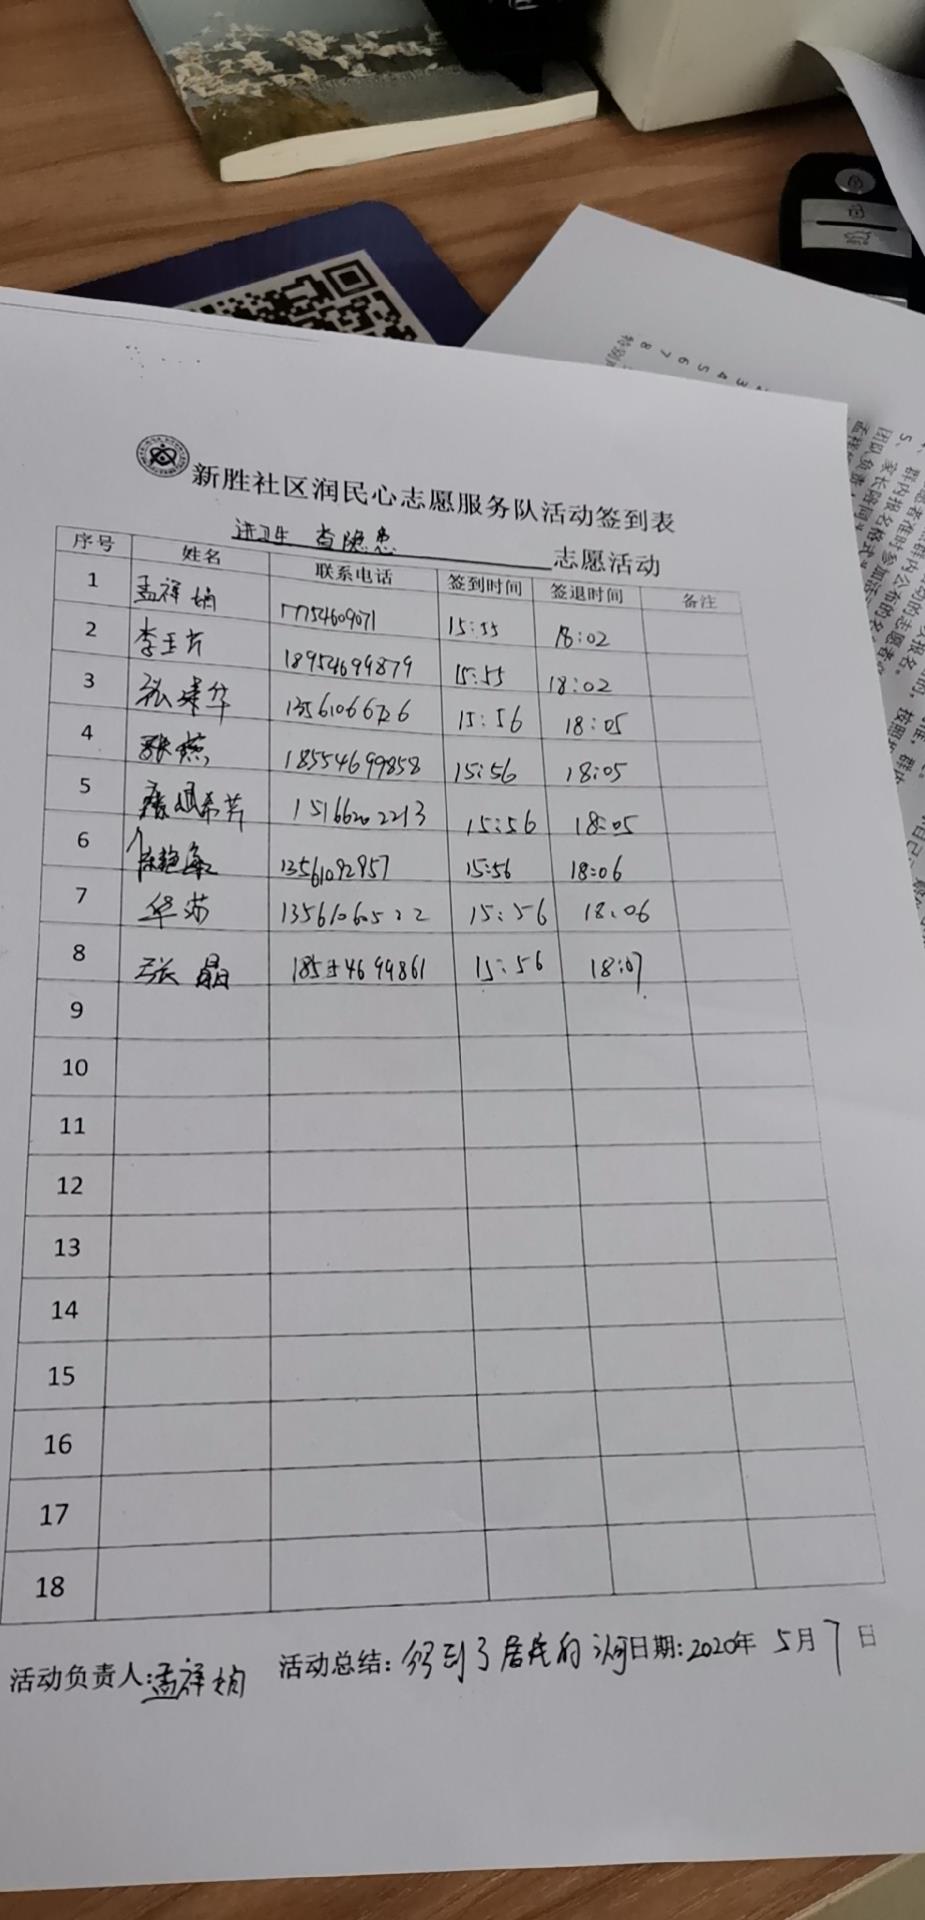 新胜社区润民心志愿服务队活动签到表
进卫生 查隐患 志愿活动
序号 姓名 联系电话 签到时间 签退时间 备注
1 孟祥娟 17754609071 15:55 18:02
2 李玉芳 18954699879 15:55 18:02
3 张建华 15:56 18:05
4 张燕 18554699858 15:56 18:05
5 15166202213 15:56 18:05
6 13561092957 15:56 18:06
7 华芬 13561060522 15:56 18:06
8 张晶 18554699861 15:56 18:07
9
10
11
12
13
14
15
16
17
18
活动负责人:孟祥娟 活动总结:得到了居民的认可 日期:2020年 5月7日